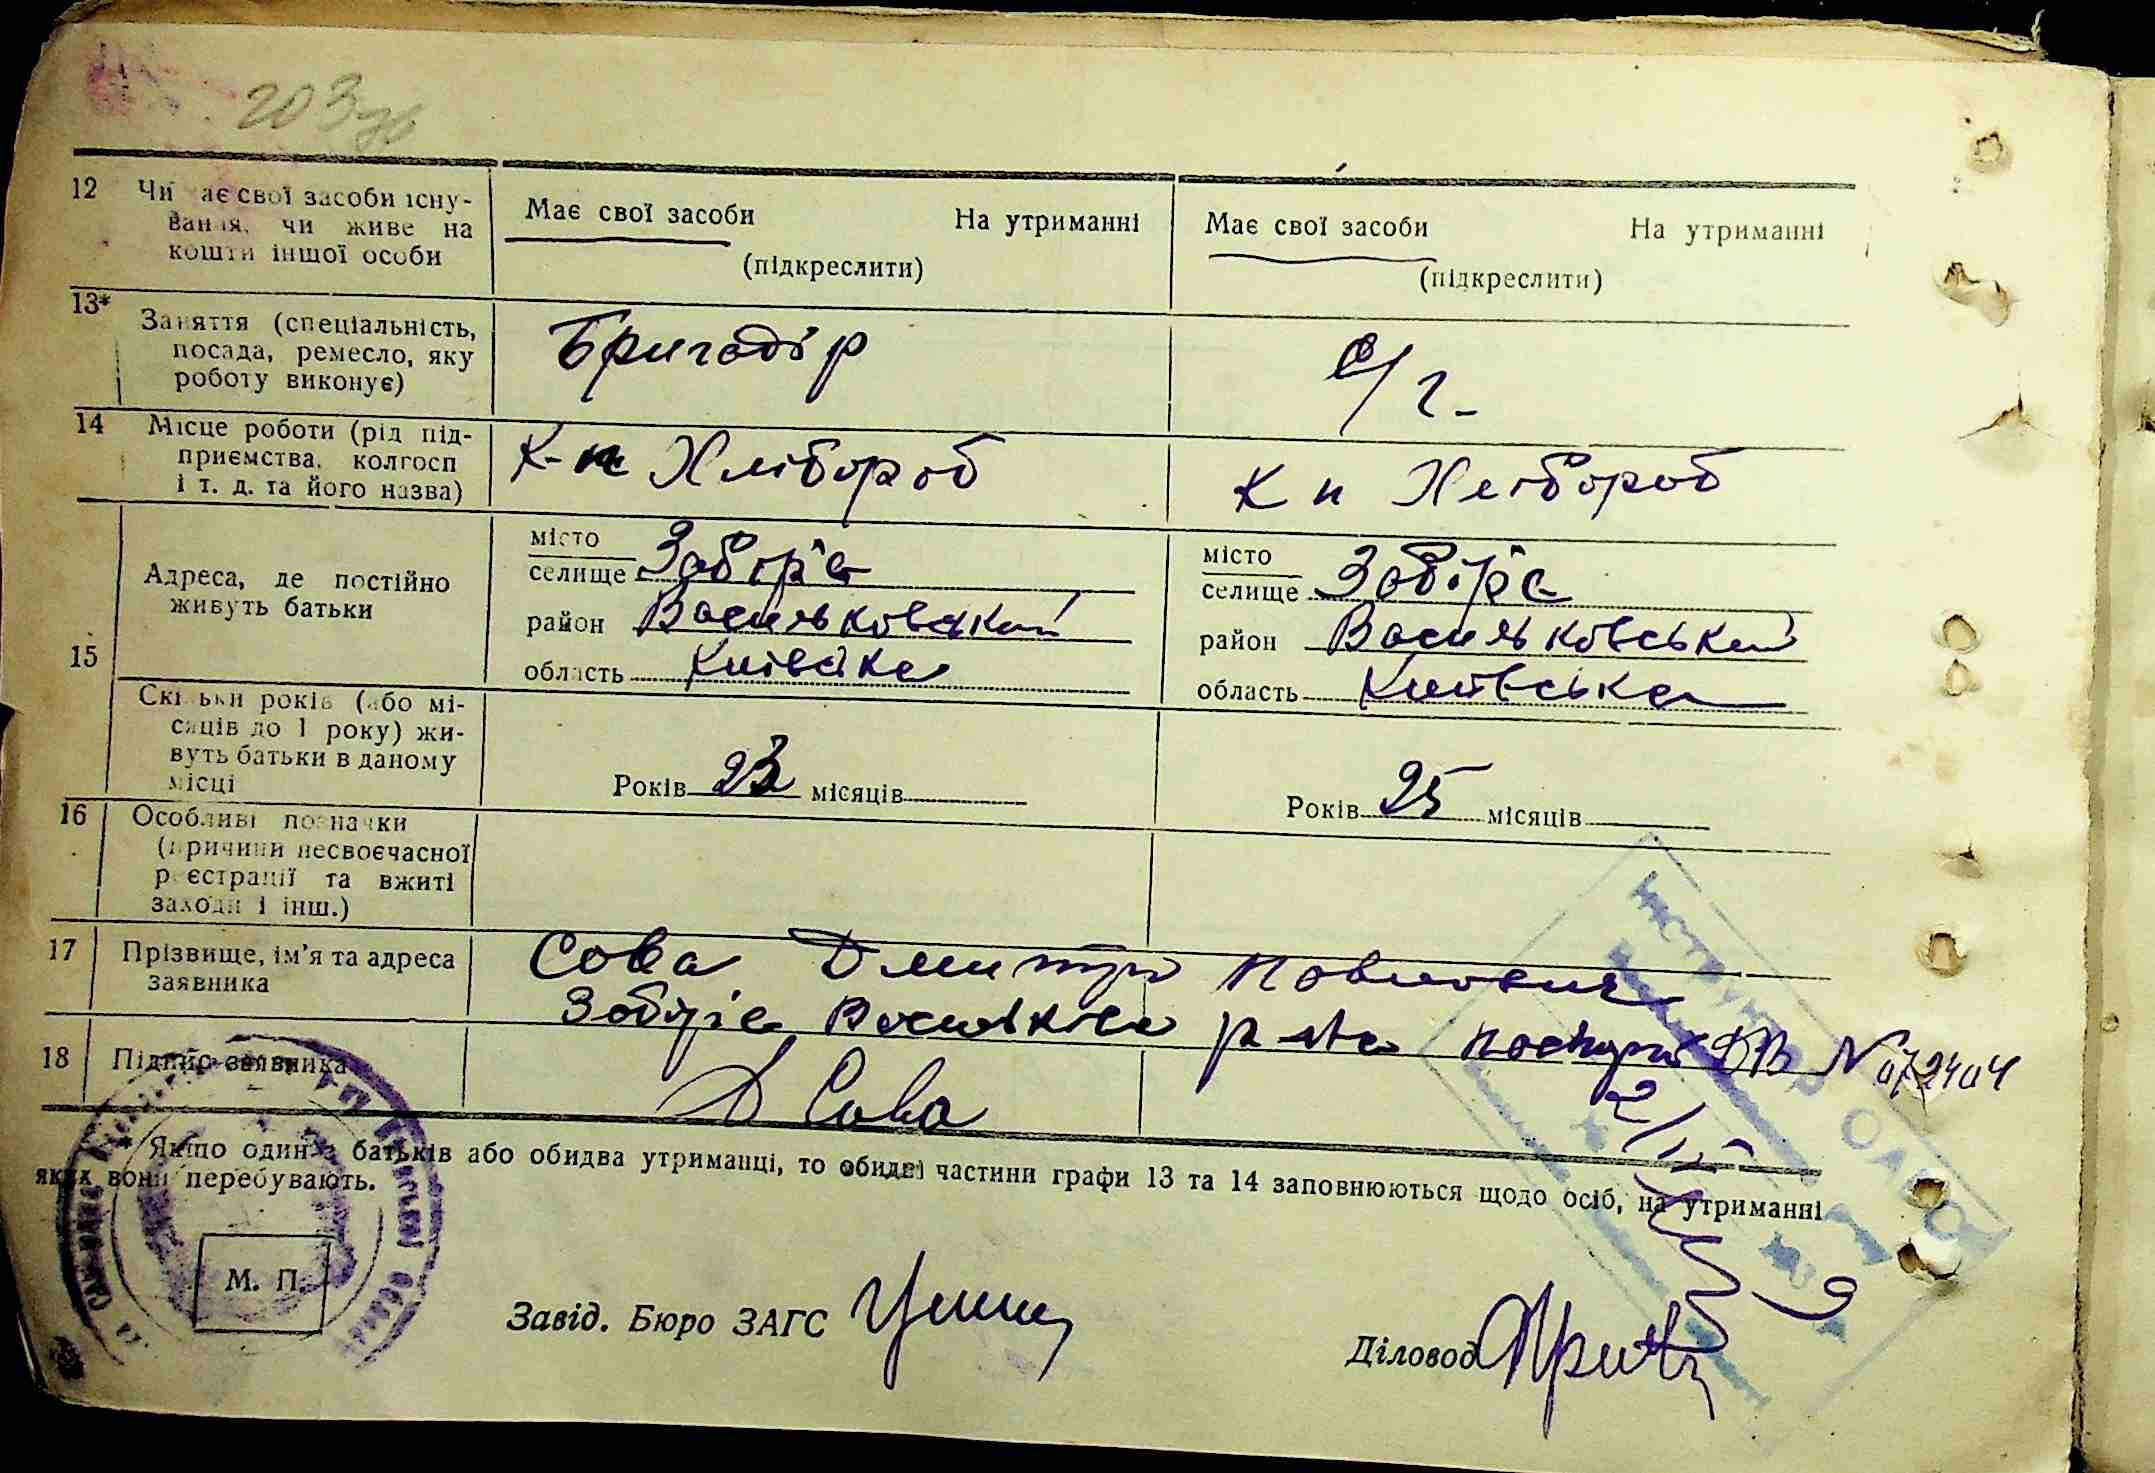 203
12 Чи має свої засоби існу- Має свої засоби На утриманні Має свої засоби На утриманні
вання, чи живе на
кошти іншої особи (підкреслити) (підкреслити)
13* Заняття (спеціальність, Бригадір с/г-
посада, ремесло, яку
роботу виконує)
14 Місце роботи (рід під- К-п Хлібороб К п Хлібороб
приємства, колгосп
і т. д. та його назва)
15 Адреса, де постійно місто селище Забір'є місто селище Забір'є
живуть батьки район Васильковский район Васильковський
область Київська область Київська
Скільки років (або мі-
сяців до 1 року) жи-
вуть батьки в даному
місці Років 23 місяців Років 25 місяців
16 Особливі позначки
(причини несвоєчасної
реєстрації та вжиті
заходи і інш.)
17 Прізвище, ім'я та адреса Сова Дмитро Павлович
заявника Забіріє р-на паспорт ДВ № 072404
18 Підпис заявника Д Сова
* Якщо один з батьків або обидва утриманці, то обидві частини графи 13 та 14 заповнюються щодо осіб, на утриманні
яких вони перебувають.
М. П.
Завід. Бюро ЗАГС
Діловод